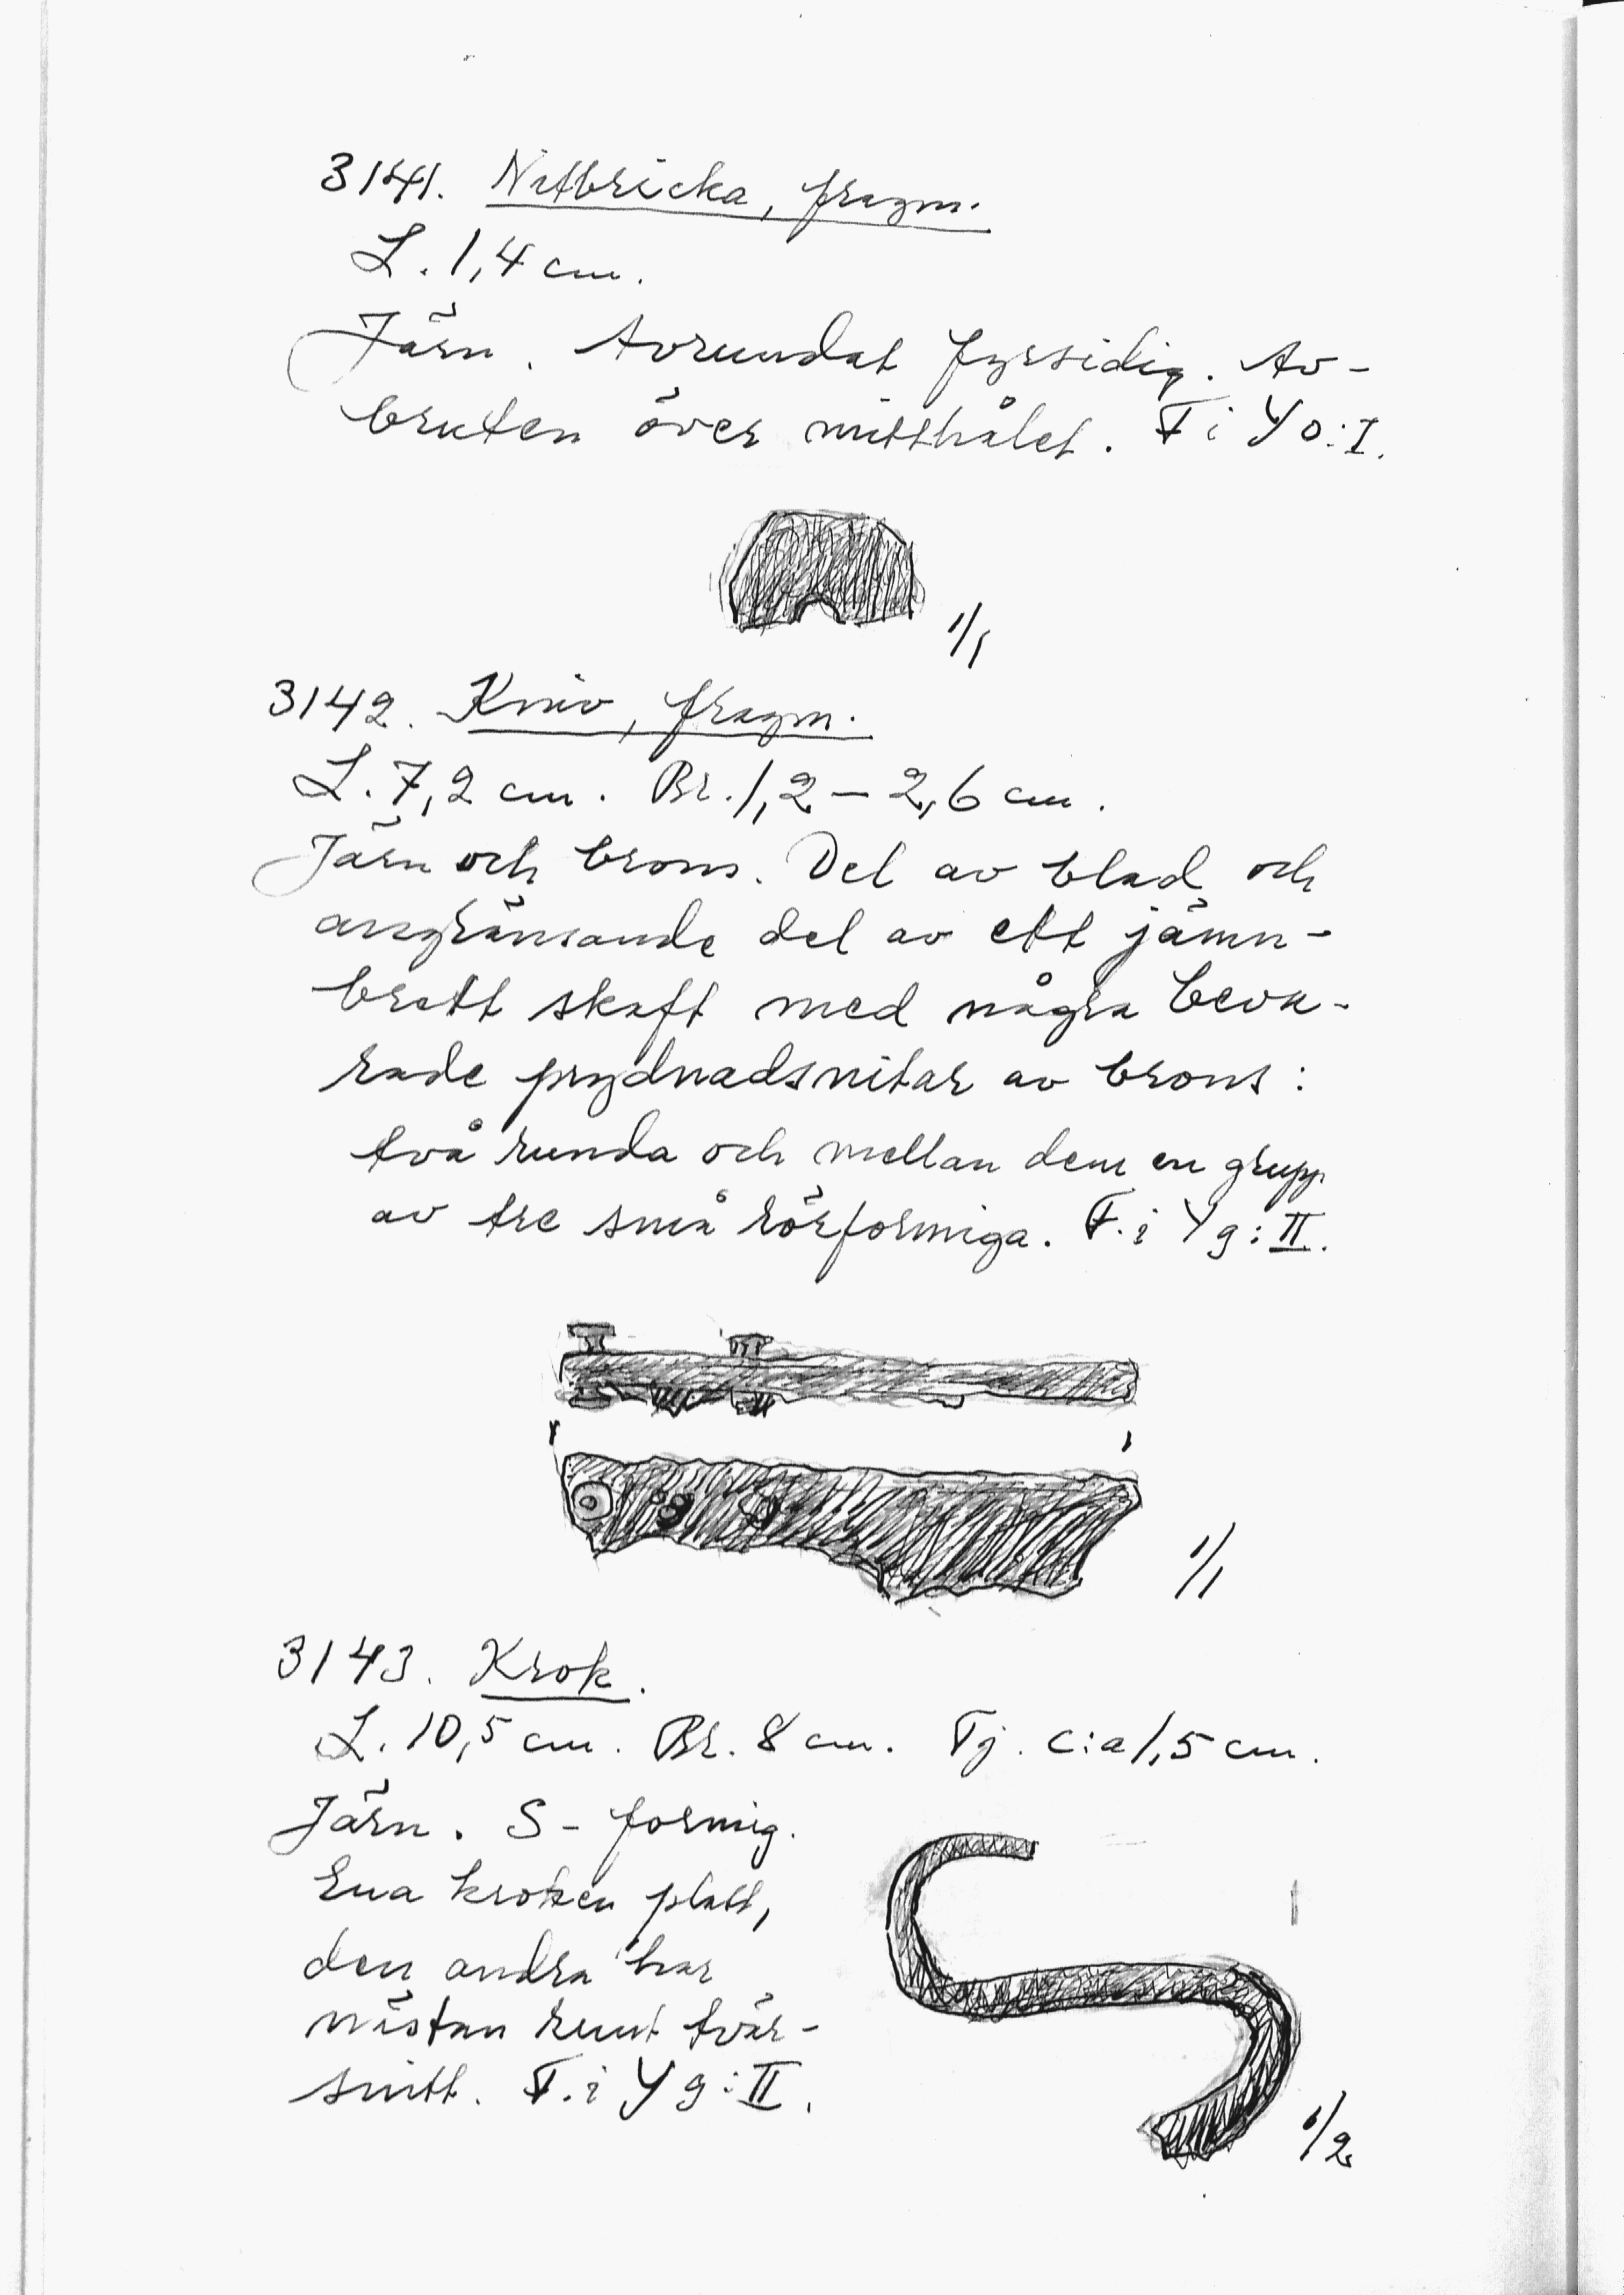 3141. Nitbricka, fragm.
L. 1,4 cm.
Järn. Avrundat fyrsidig. Av-
bruten över mitthålet. F i Yo:I.
1/1
3142. Kniv, fragm.
L. 7,2 cm. Br. 1,2 – 2,6 cm.
Järn och brons. Del av blad och
angränsande del av ett jämn-
brett skaft med några beva-
rade prydnadsnitar av brons:
två runda och mellan dem en grupp
av tre små rörformiga. F. i Yg:II.
1/1
3143. Krok.
L. 10,5 cm. Br. 8 cm. Tj. c:a 1,5 cm.
Järn. S-formig.
Ena kroken platt,
den andra har
nästan runt tvär-
snitt. F. i Yg:II.
1/2